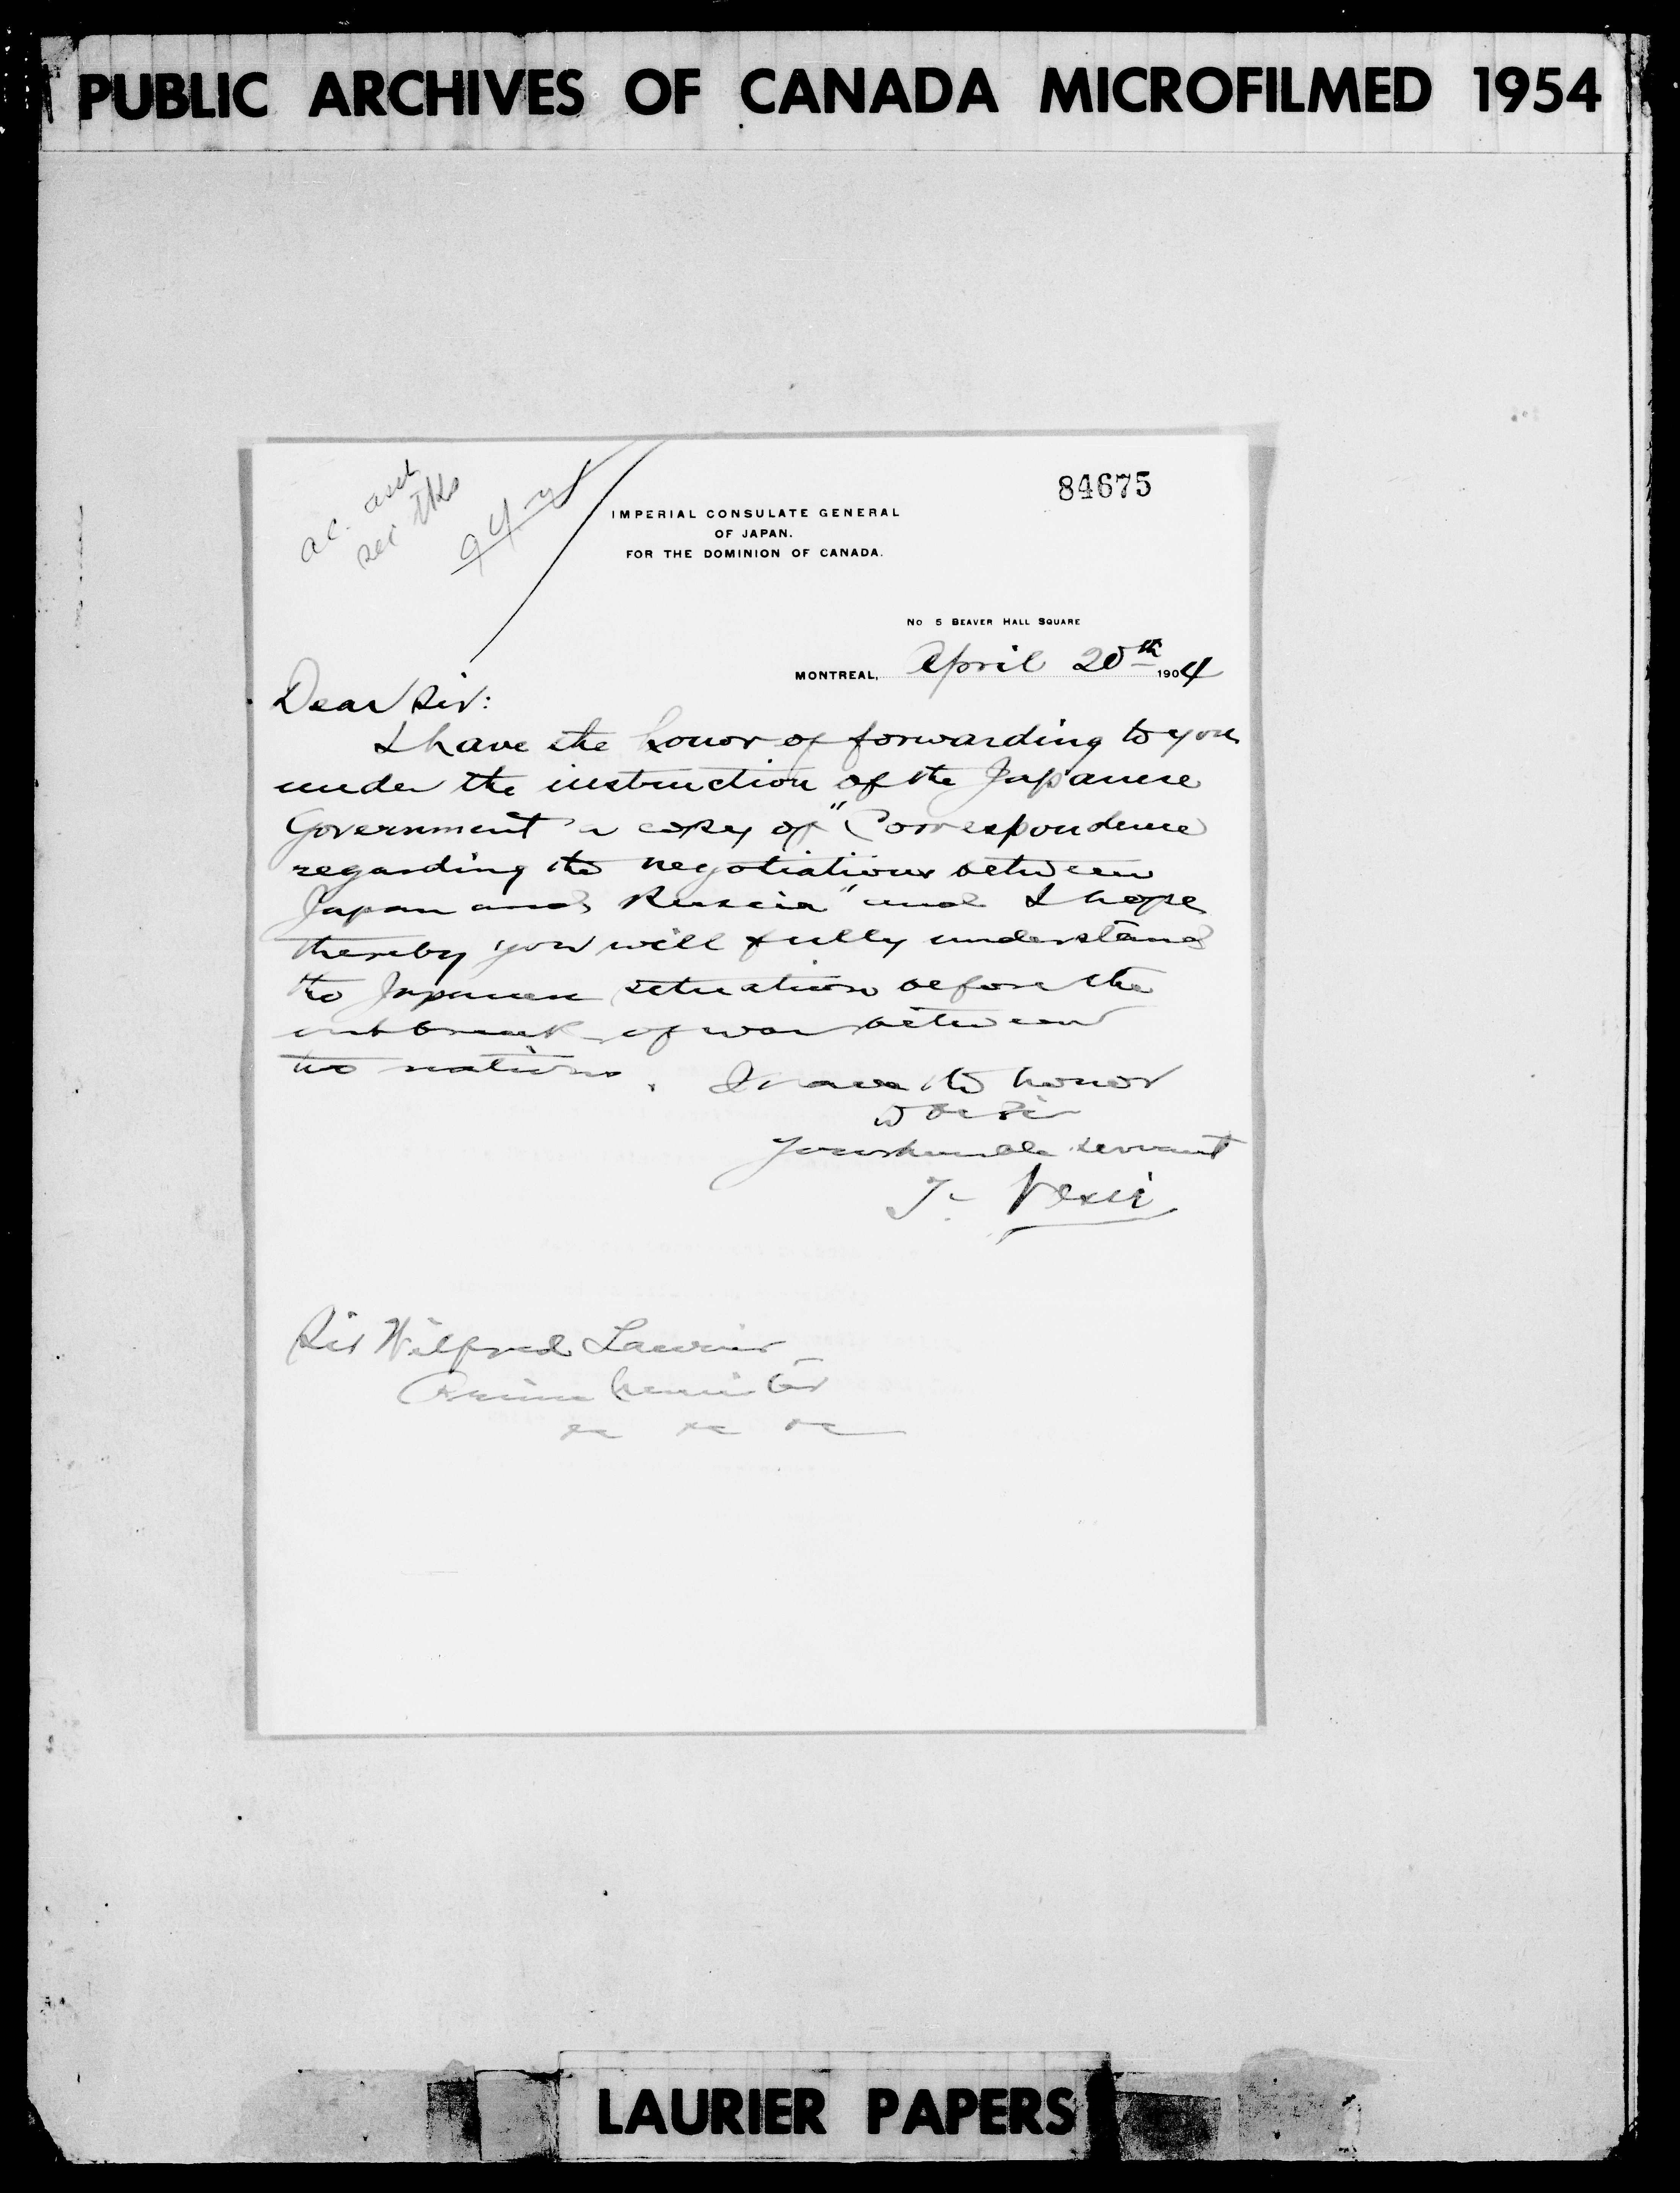 PUBLIC ARCHIVES OF CANADA MICROFILMED 1954
84675
ac. and
rec thks
IMPERIAL CONSULATE GENERAL
OF JAPAN.
FOR THE DOMINION OF CANADA.
No 5 BEAVER HALL SQUARE
MONTREAL, April 20th 1904
Dear Sir:
I have the honor of forwarding to you
under the instruction of the Japanese
Government a copy of "Correspondence
regarding the negotiations between
Japan and Russia" and I hope
thereby you will fully understand
the Japanese situation before the
outbreak of war between
two nations. I have the honor
to be Sir
Your humble servant
T.
Sir Wilfred Laurier
Prime Minister
&c &c &c
LAURIER PAPERS